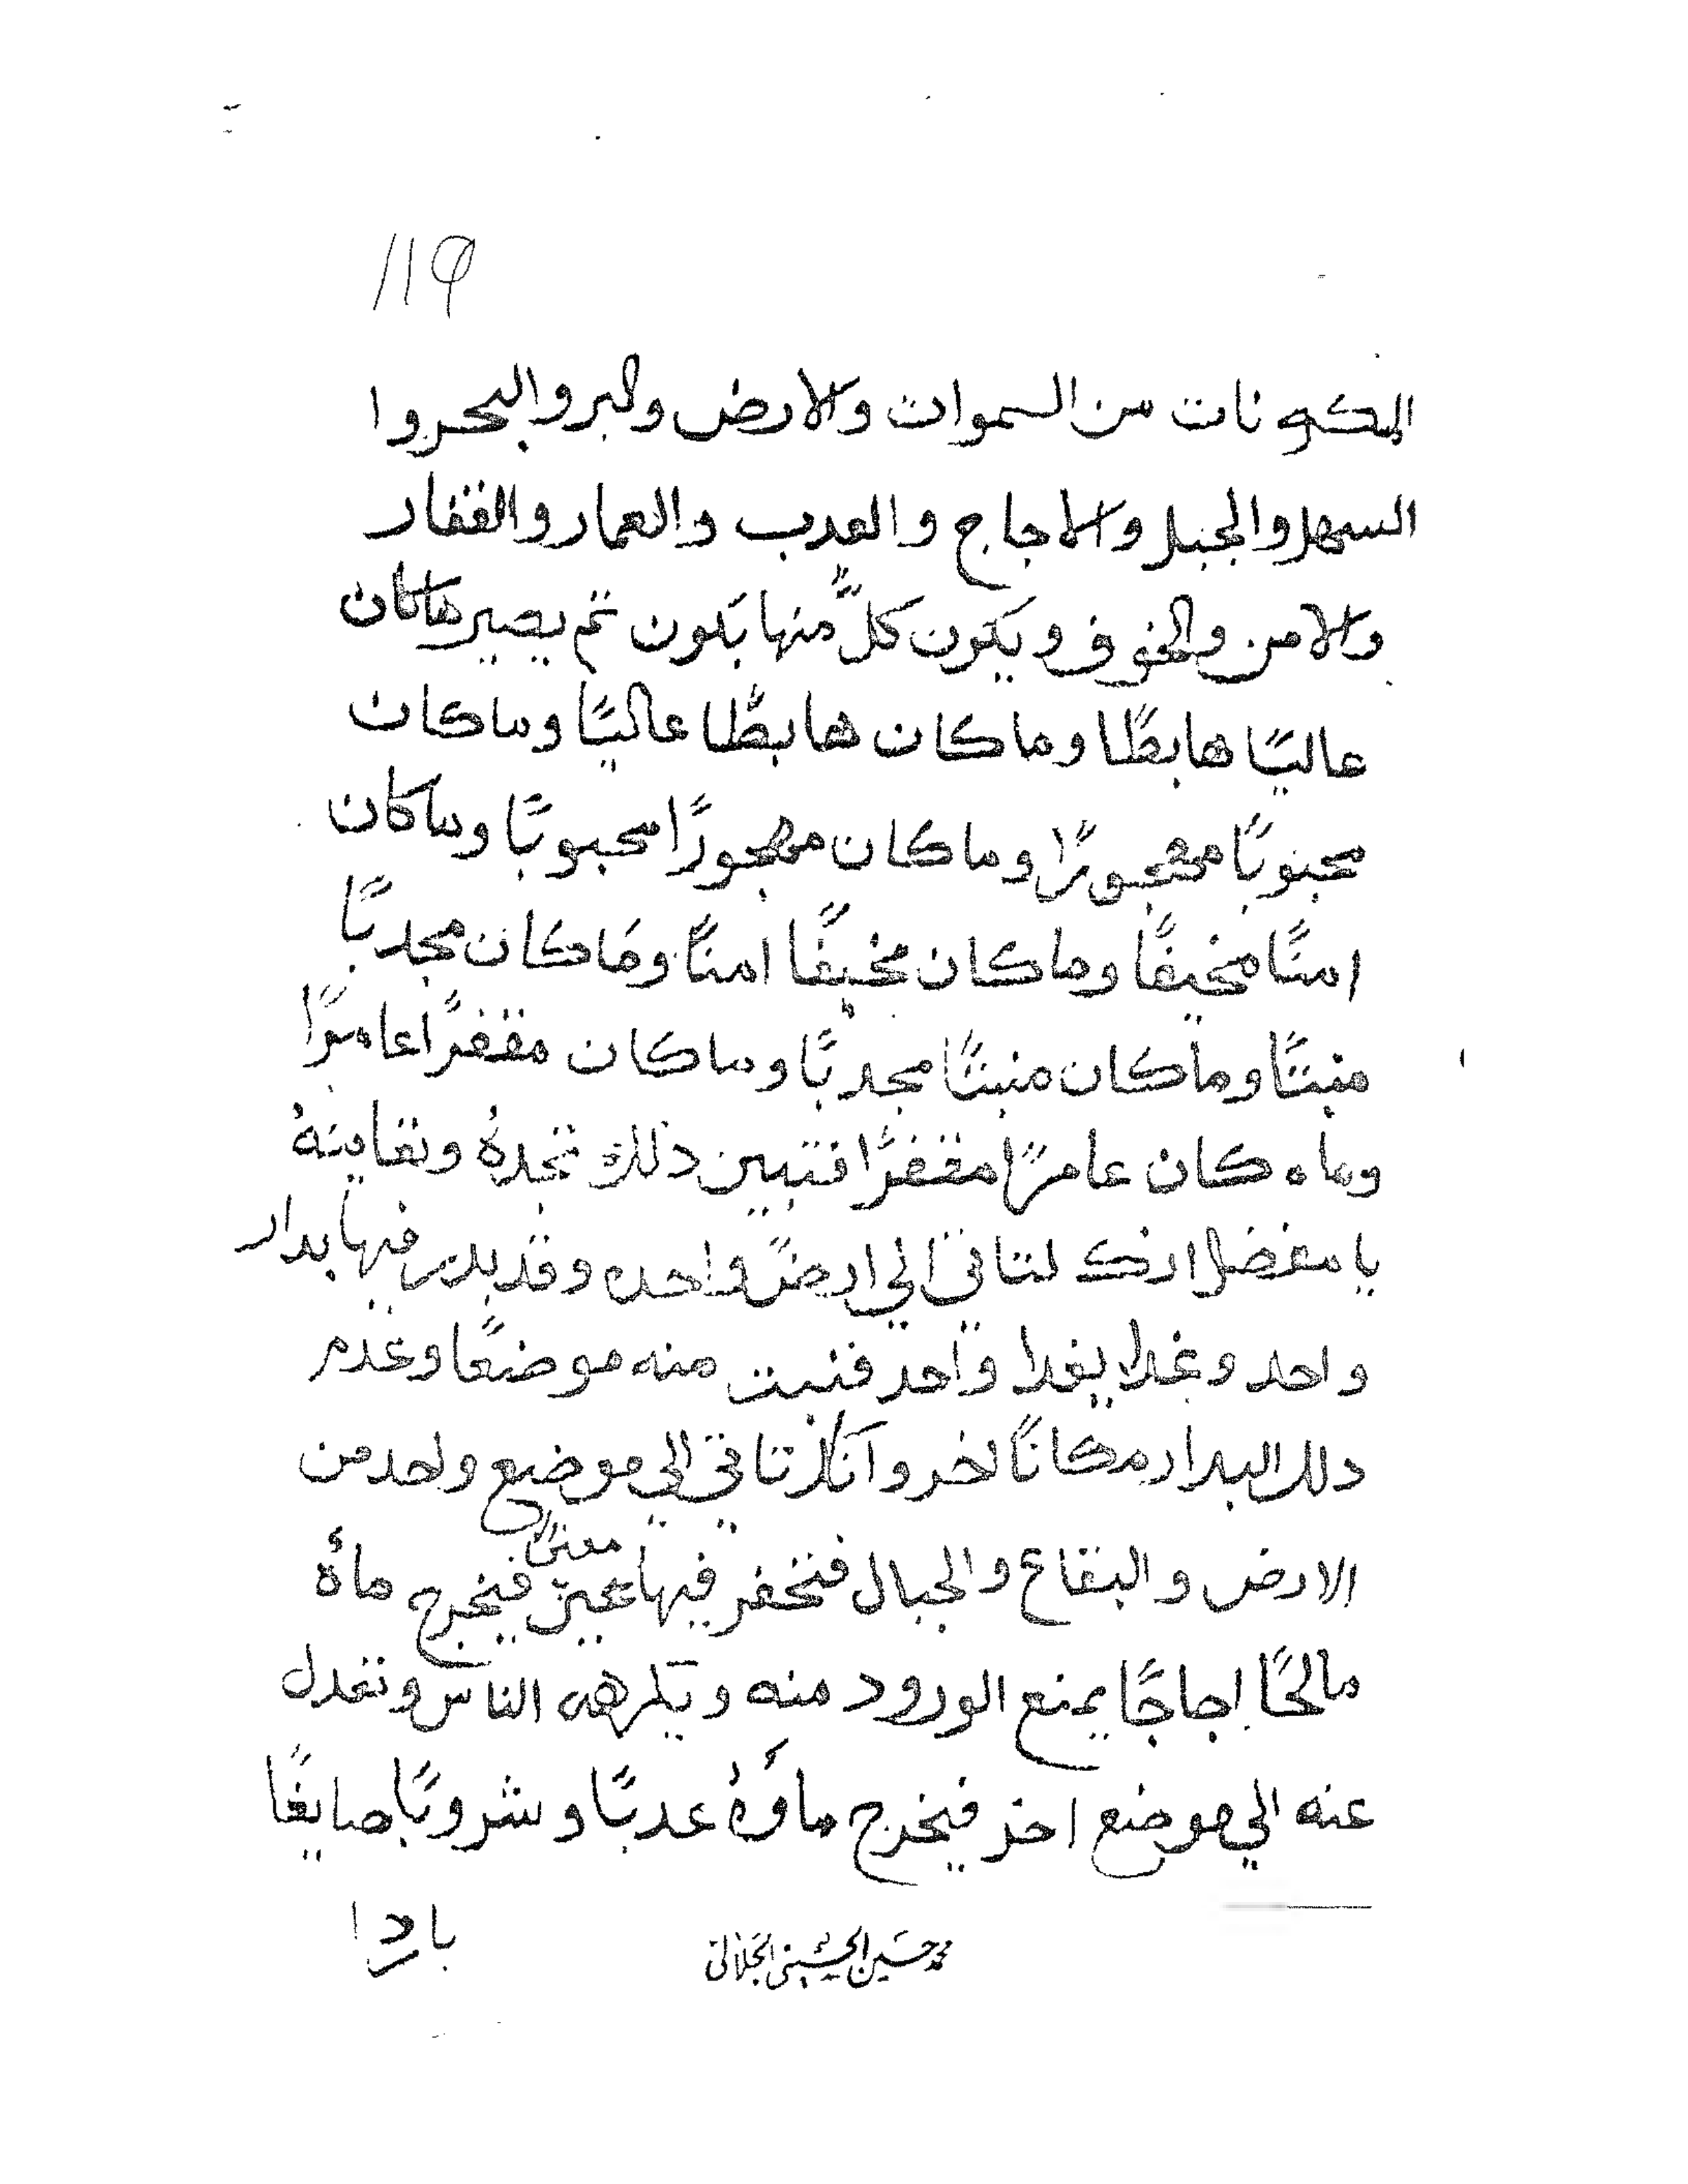 119
المكونات من السموات والارض والبر والبحر وا
السهل والجبل والاجاج والعدب والعمار والقفار
والامن والخوف ويكون كلًّ منها بكون تم يصير ماكان
عاليًا هابطًا وماكان هابطًا عاليًا وماكان
محبوبًا مهجورًا وماكان مهجورًا محبوبًا وماكان
امنًا مخيفًا وماكان مخيفًا امنًا وماكان مجدبًا
منبتًا وماكان منبتًا مجدبًا وماكان مقفرًا عامرًا
وما كان عامرًا مقفرًا فتبين ذلك تجدهُ وتعاينهُ
يا مفضل انك لتاتي الي ارضً واحده وقد بدر فيها بدار
واحد وغلا بغلا واحد فنبت منه موضعًا وعدم
دلك البدار مكانًا اخر وانك تاتي الي موضع واحد من
الارض والبقاع والجبال فتحفر فيها معينًا فيخرج ماءه
مالحًا اجاجًا يمنع الورود منه ويكرهه الناس وتعدل
عنه الي موضع اخر فيخرج ماؤهُ عدبًا وشروبًا صايغًا
باردا
محمد حسين الحسيني الجلالي